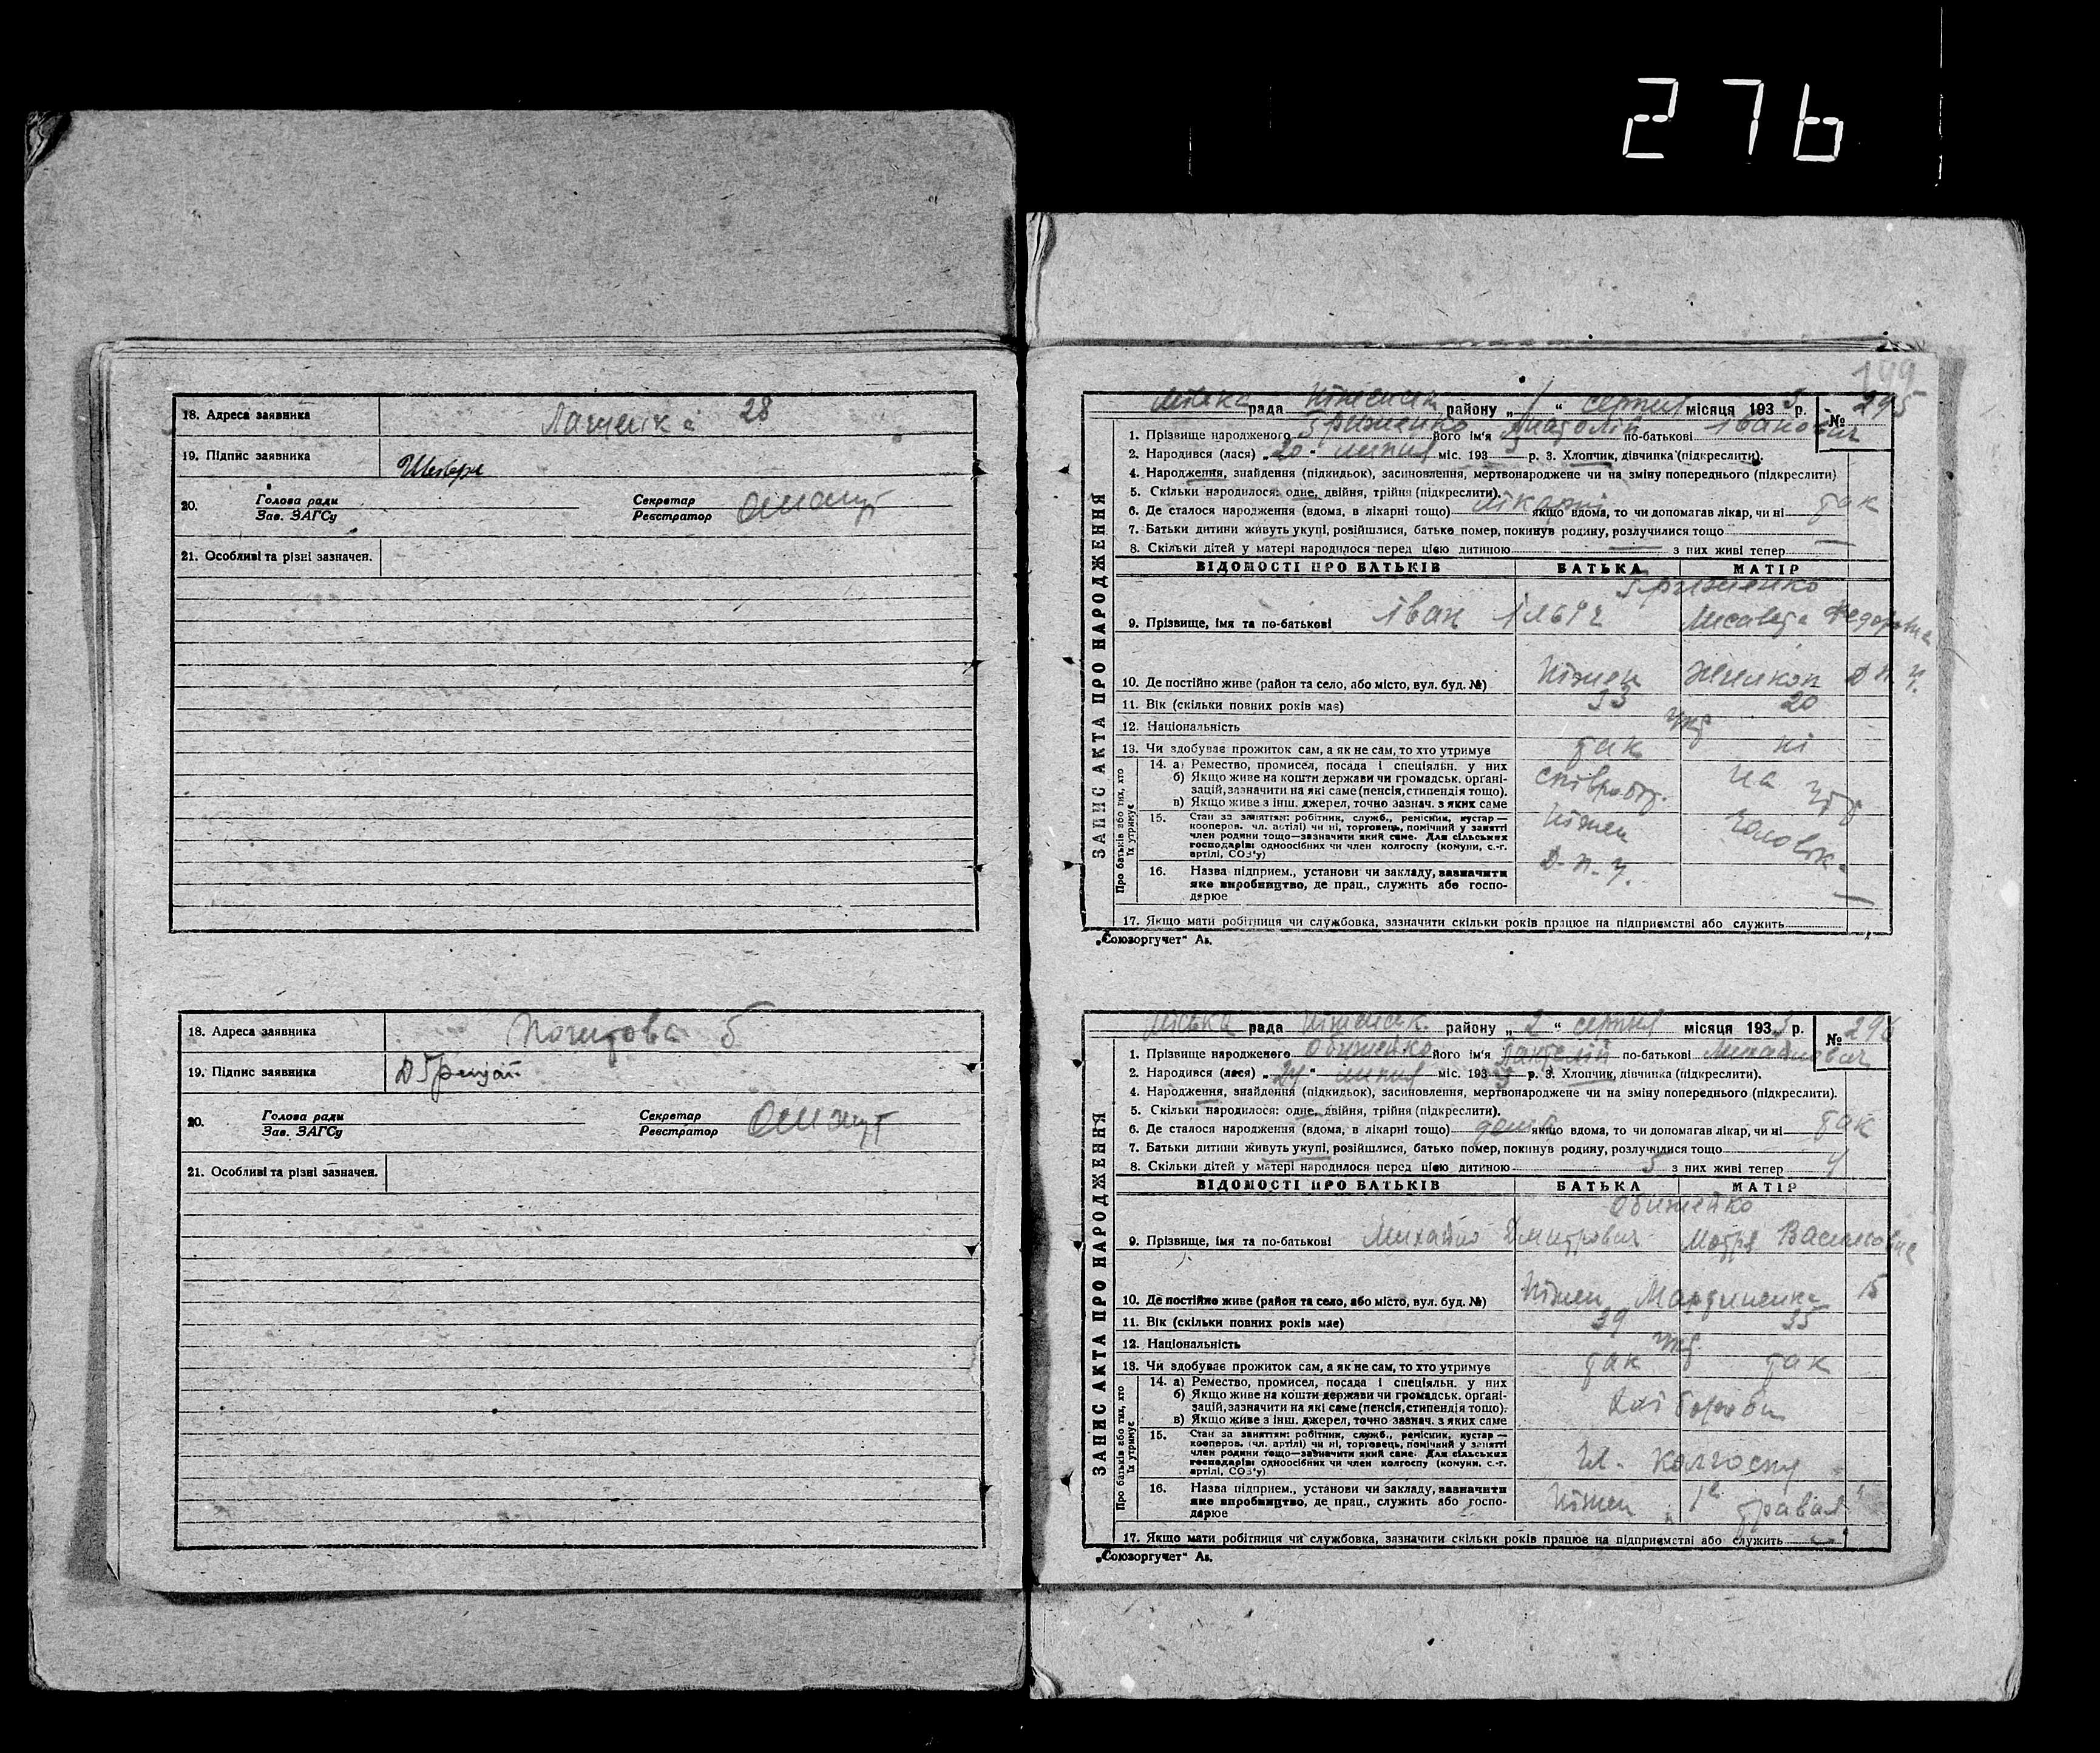 276
18. Адреса заявника 28
19. Підпис заявника
20. Голова ради Секретар
Зав. ЗАГСу Реєстратор
21. Особливі та різні зазначен.
18. Адреса заявника 5
19. Підпис заявника
20. Голова ради Секретар
Зав. ЗАГСу Реєстратор
21. Особливі та різні зазначен.
149
ЗАПИС АКТА ПРО НАРОДЖЕННЯ
Міська рада Ніженськ району „ 1 “ серпня місяця 193 3 р. № 295
1. Прізвище народженого його ім'я Анатолій по-батькові Іванович
2. Народився (лася) „ 20 “ липня міс. 193 3 р. 3. Хлопчик, дівчинка (підкреслити).
4. Народження, знайдення (підкидьок), засиновлення, мертвонароджене чи на зміну попереднього (підкреслити)
5. Скільки народилося: одне, двійня, трійня (підкреслити).
6. Де сталося народження (вдома, в лікарні тощо) лікарні якщо вдома, то чи допомагав лікар, чи ні так
7. Батьки дитини живуть укупі, розійшлися, батько помер, покинув родину, розлучилися тощо
8. Скільки дітей у матері народилося перед цією дитиною — з них живі тепер —
ВІДОМОСТІ ПРО БАТЬКІВ БАТЬКА МАТІР
9. Прізвище, імя та по-батькові Іван Ілліч Федоровна
10. Де постійно живе (район та село, або місто, вул. буд. №) Ніжен Д.П.У.
11. Вік (скільки повних років має) 33 20
12. Національність укр
13. Чи здобуває прожиток сам, а як не сам, то хто утримує так ні
Про батьків або тих, хто їх утримує
14. а) Ремество, промисел, посада і спеціяльн. у них співробіт. на утр
б) Якщо живе на кошти держави чи громадськ. організацій, зазначити на які саме (пенсія, стипендія тощо).
в) Якщо живе з інш. джерел, точно зазнач. з яких саме
15. Стан за заняттям: робітник, служб., ремісник, кустар— Ніжен чолов.
кооперов. чл. артілі) чи ні, торговець, помічний у занятті
член родини тощо—зазначити який саме. Для сільських
господарів: одноосібних чи член колгоспу (комуни, с.-г.
артілі, СОЗ'у)
16. Назва підприєм., установи чи закладу, зазначити Д.П.У. —
яке виробництво, де прац., служить або господарює
17. Якщо мати робітниця чи службовка, зазначити скільки років працює на підприємстві або служить
„Союзоргучет“ Ав.
ЗАПИС АКТА ПРО НАРОДЖЕННЯ
Міська рада Ніженськ. району „ 2 “ серпня місяця 193 3 р. № 296
1. Прізвище народженого його ім'я Пантелій по-батькові Михайлович
2. Народився (лася) „ 24 “ липня міс. 193 3 р. 3. Хлопчик, дівчинка (підкреслити).
4. Народження, знайдення (підкидьок), засиновлення, мертвонароджене чи на зміну попереднього (підкреслити).
5. Скільки народилося: одне, двійня, трійня (підкреслити).
6. Де сталося народження (вдома, в лікарні тощо) якщо вдома, то чи допомагав лікар, чи ні так
7. Батьки дитини живуть укупі, розійшлися, батько помер, покинув родину, розлучилися тощо
8. Скільки дітей у матері народилося перед цією дитиною 5 з них живі тепер 4
ВІДОМОСТІ ПРО БАТЬКІВ БАТЬКА МАТІР
9. Прізвище, імя та по-батькові Михайло Дмитрович Мотря Василовна
10. Де постійно живе (район та село, або місто, вул. буд. №) Ніжен 15
11. Вік (скільки повних років має) 39 35
12. Національність укр
13. Чи здобуває прожиток сам, а як не сам, то хто утримує так так
Про батьків або тих, хто їх утримує
14. а) Ремество, промисел, посада і спеціяльн. у них хлібороби
б) Якщо живе на кошти держави чи громадськ. організацій, зазначити на які саме (пенсія, стипендія тощо).
в) Якщо живе з інш. джерел, точно зазнач. з яких саме
15. Стан за заняттям: робітник, служб., ремісник, кустар— чл. колгоспу
кооперов. (чл. артілі) чи ні, торговець, помічний у занятті
член родини тощо—зазначити який саме. Для сільських
господарів: одноосібних чи член колгоспу (комуни, с.-г.
артілі, СОЗ'у)
16. Назва підприєм., установи чи закладу, зазначити Ніжен „1е травня“
яке виробництво, де прац., служить або господарює
17. Якщо мати робітниця чи службовка, зазначити скільки років працює на підприємстві або служить
„Союзоргучет“ Ав.